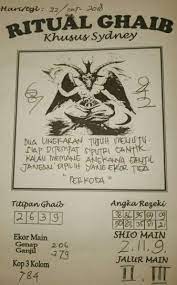 Hari/tgl : 22/
RITUAL GHAIB
Khusus Sydney
DUA LINGKARAN TUBUH MENUTU
SIAP DITEMPAT SI PUTRI CANTIK
KALAU MEMANG ANGKANYA GANJIL
JANGAN DIPILIH YANG EKOR TIGA
"PERKOSA"
Titipan Ghaib
2 6 3 9
Angka Rezeki
Ekor Main
Genap 206
Ganjil 379
SHIO MAIN
2.11.9.
Kop 3 Kolom
784
JALUR MAIN
II . III